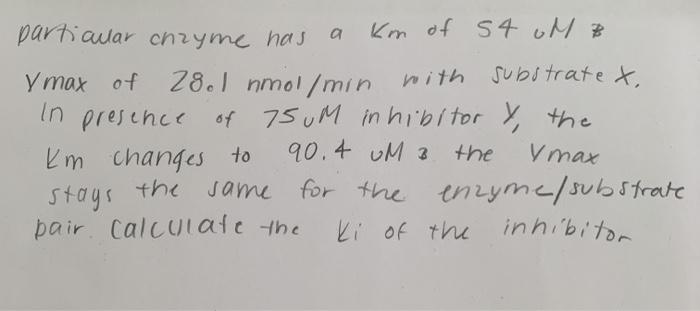 particular enzyme has a Km of 54 uM &
Vmax of 28.1 nmol/min with substrate X.
In presence of 75uM inhibitor Y, the
Km changes to 90.4 uM & the Vmax
stays the same for the enzyme/substrate
pair. Calculate the Ki of the inhibitor